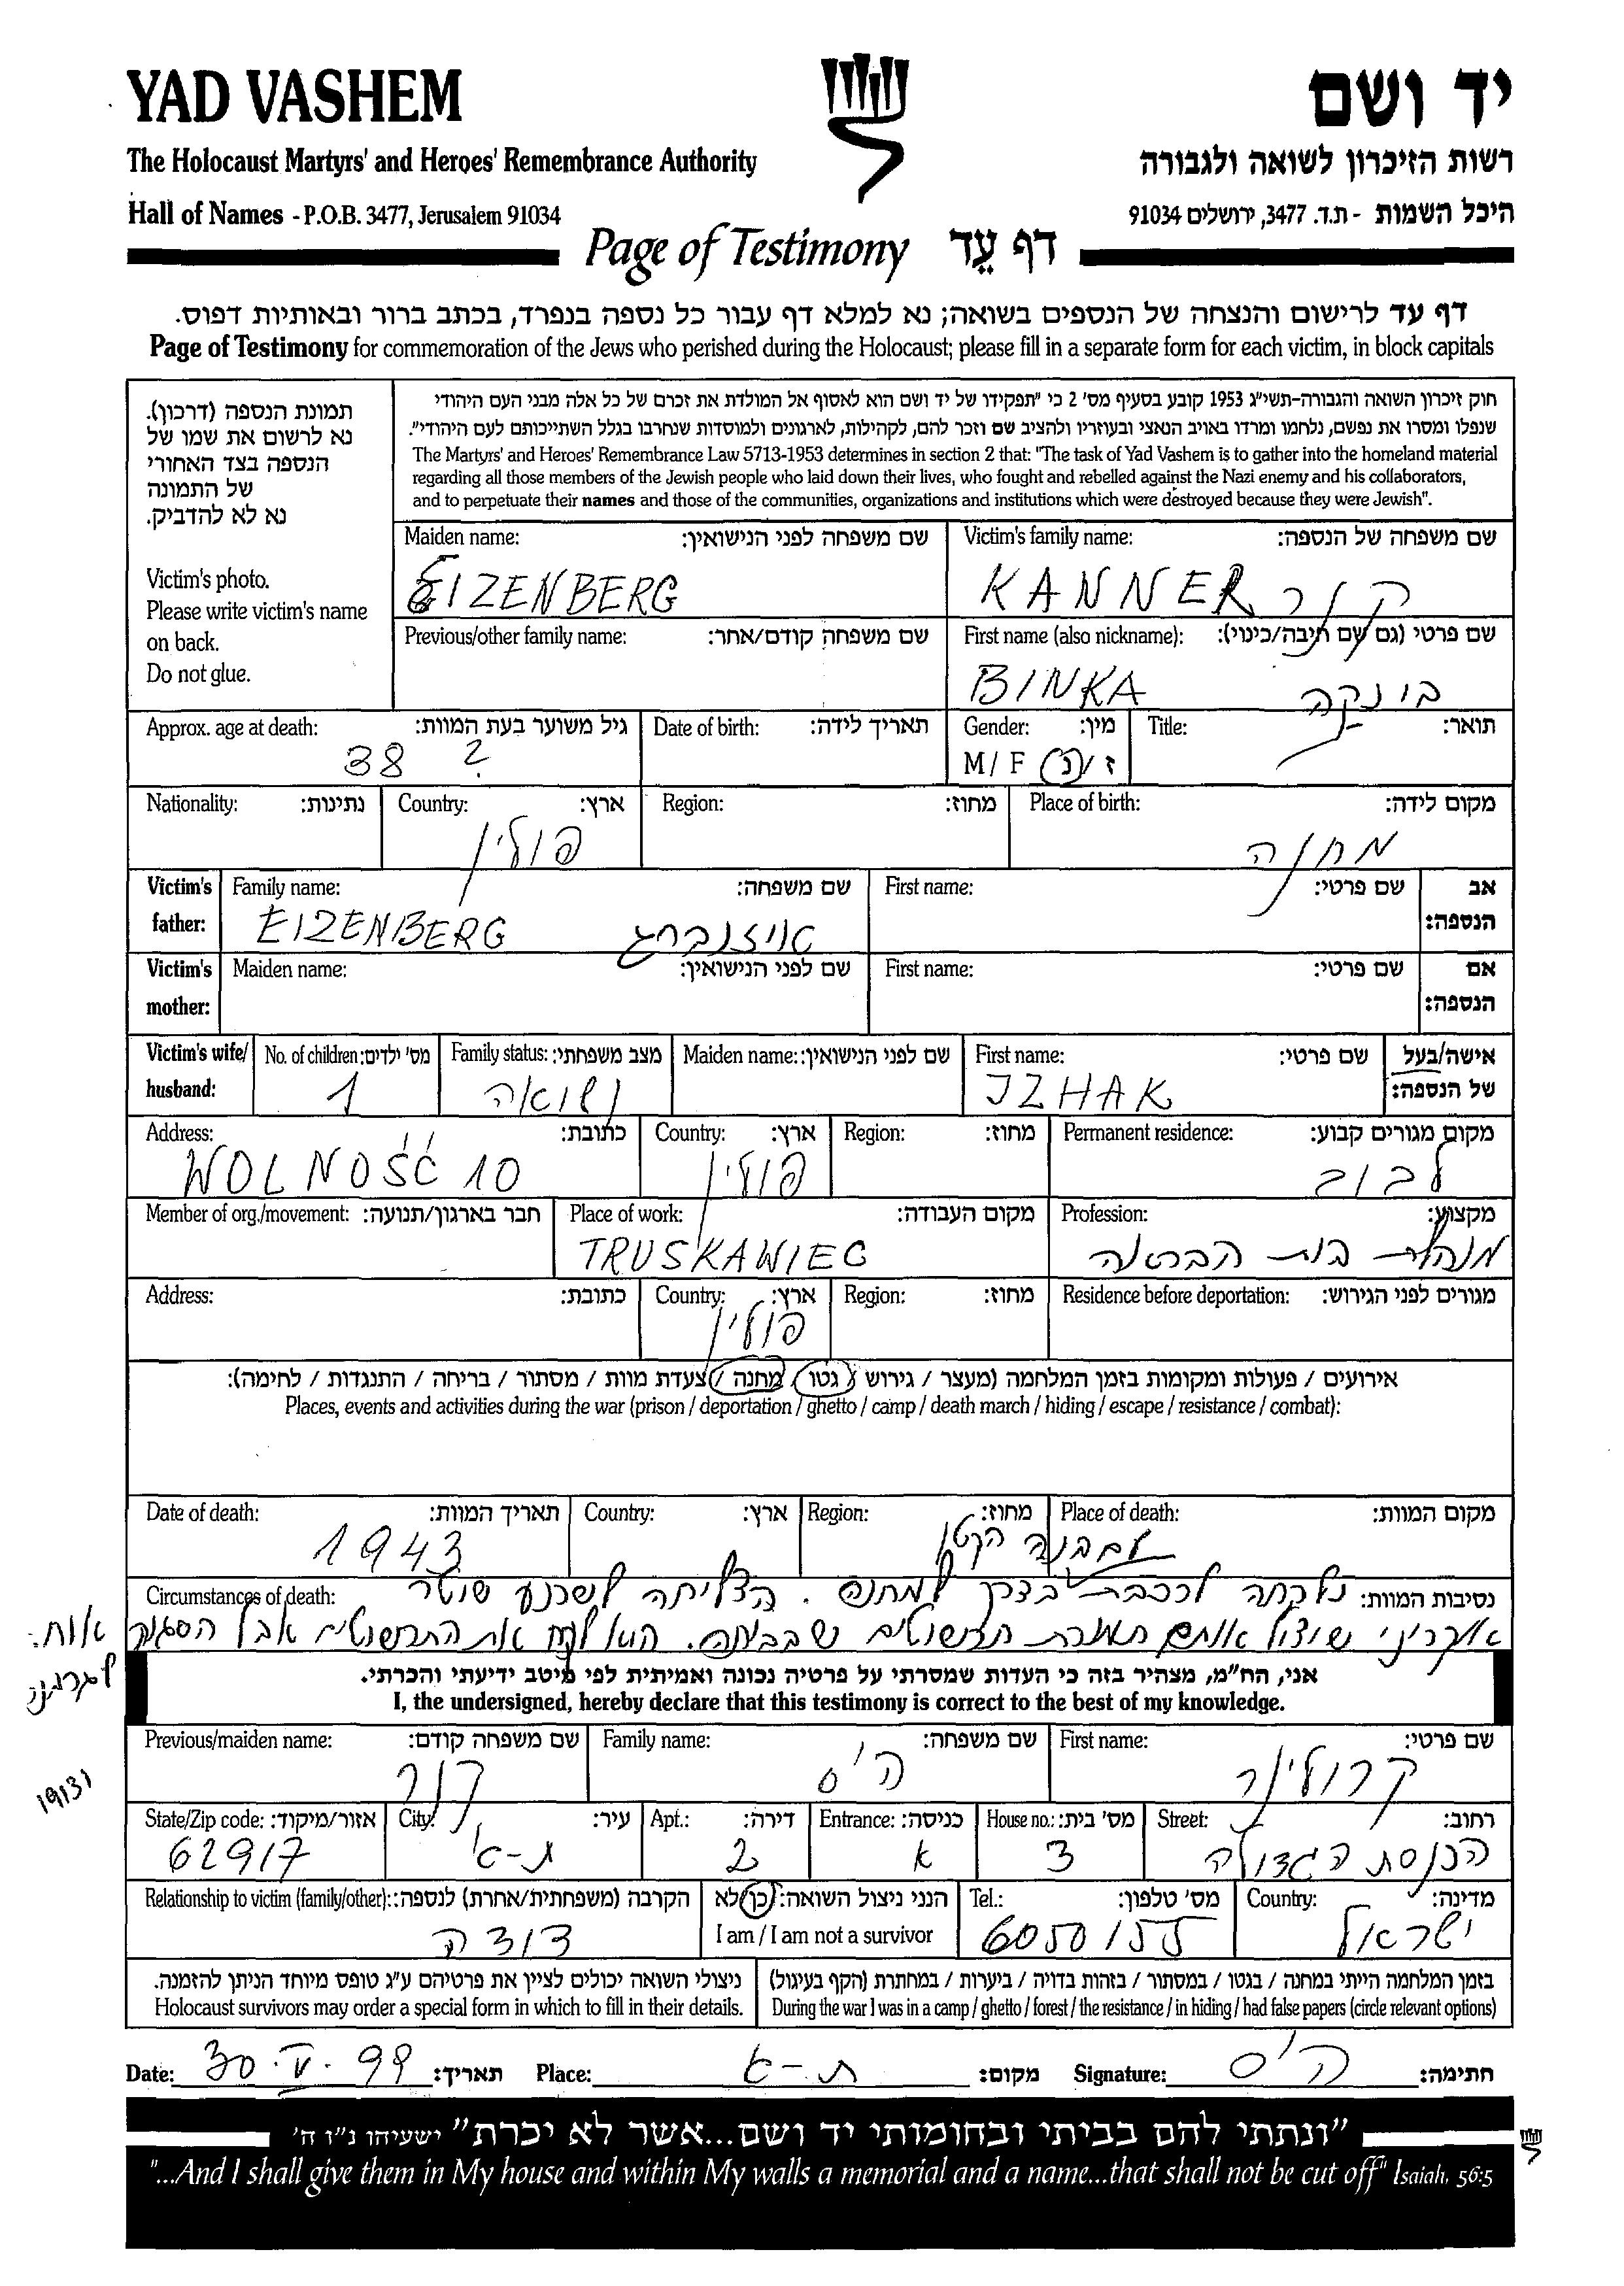 YAD VASHEM
יד ושם
The Holocaust Martyrs' and Heroes' Remembrance Authority
רשות הזיכרון לשואה ולגבורה
Hall of Names - P.O.B. 3477, Jerusalem 91034
היכל השמות - ת.ד. 3477, ירושלים 91034
Page of Testimony דף עֵד
דף עד לרישום והנצחה של הנספים בשואה; נא למלא דף עבור כל נספה בנפרד, בכתב ברור ובאותיות דפוס.
Page of Testimony for commemoration of the Jews who perished during the Holocaust; please fill in a separate form for each victim, in block capitals
תמונת הנספה (דרכון).
נא לרשום את שמו של
הנספה בצד האחורי
של התמונה
נא לא להדביק.
Victim's photo.
Please write victim's name
on back.
Do not glue.
חוק זיכרון השואה והגבורה-תשי"ג 1953 קובע בסעיף מס' 2 כי "תפקידו של יד ושם הוא לאסוף אל המולדת את זכרם של כל אלה מבני העם היהודי
שנפלו ומסרו את נפשם, נלחמו ומרדו באויב הנאצי ובעוזריו ולהציב שם וזכר להם, לקהילות, לארגונים ולמוסדות שנחרבו בגלל השתייכותם לעם היהודי".
The Martyrs' and Heroes' Remembrance Law 5713-1953 determines in section 2 that: "The task of Yad Vashem is to gather into the homeland material
regarding all those members of the Jewish people who laid down their lives, who fought and rebelled against the Nazi enemy and his collaborators,
and to perpetuate their names and those of the communities, organizations and institutions which were destroyed because they were Jewish".
Maiden name: שם משפחה לפני הנישואין: Victim's family name: שם משפחה של הנספה:
EIZENBERG KANNER קנר
Previous/other family name: שם משפחה קודם/אחר: First name (also nickname): שם פרטי (גם שם חיבה/כינוי):
BINKA בינקה
Approx. age at death: גיל משוער בעת המוות: Date of birth: תאריך לידה: Gender: מין: Title: תואר:
38 ? M / F ז / נ
Nationality: נתינות: Country: ארץ: Region: מחוז: Place of birth: מקום לידה:
פולין מחנה
Victim's father: Family name: שם משפחה: First name: שם פרטי: אב הנספה:
EIZENBERG אייזנברג
Victim's mother: Maiden name: שם לפני הנישואין: First name: שם פרטי: אם הנספה:
Victim's wife/ husband: No. of children: מס' ילדים: Family status: מצב משפחתי: Maiden name: שם לפני הנישואין: First name: שם פרטי: אישה/בעל של הנספה:
1 נשואה IZHAK
Address: כתובת: Country: ארץ: Region: מחוז: Permanent residence: מקום מגורים קבוע:
WOLNOŚĆ 10 פולין לבוב
Member of org./movement: חבר בארגון/תנועה: Place of work: מקום העבודה: Profession: מקצוע:
TRUSKAWIEC מנהלת בית הבראה
Address: כתובת: Country: ארץ: Region: מחוז: Residence before deportation: מגורים לפני הגירוש:
פולין
אירועים / פעולות ומקומות בזמן המלחמה (מעצר / גירוש / גטו / מחנה / צעדת מוות / מסתור / בריחה / התנגדות / לחימה):
Places, events and activities during the war (prison / deportation / ghetto / camp / death march / hiding / escape / resistance / combat):
Date of death: תאריך המוות: Country: ארץ: Region: מחוז: Place of death: מקום המוות:
1943 הקטן
Circumstances of death: נסיבות המוות: נלקחה לרכבת בדרך למחנה. הצליחה לשכנע שוטר
אוקריני שיציל אותם תמורת תכשיטים שבביתה. הוא לקח את התכשיטים אבל הסגיר
אותה
לגרמנים
אני, הח"מ, מצהיר בזה כי העדות שמסרתי על פרטיה נכונה ואמיתית לפי מיטב ידיעתי והכרתי.
I, the undersigned, hereby declare that this testimony is correct to the best of my knowledge.
Previous/maiden name: שם משפחה קודם: Family name: שם משפחה: First name: שם פרטי:
קנר היס קרולינר
19131
State/Zip code: אזור/מיקוד: City: עיר: Apt.: דירה: Entrance: כניסה: House no.: מס' בית: Street: רחוב:
62917 ת-א 2 א 3 הכנסת הגדולה
Relationship to victim (family/other): הקרבה (משפחתית/אחרת) לנספה: הנני ניצול השואה: כן/לא Tel.: מס' טלפון: Country: מדינה:
דודה I am / I am not a survivor ישראל
ניצולי השואה יכולים לציין את פרטיהם ע"ג טופס מיוחד הניתן להזמנה.
Holocaust survivors may order a special form in which to fill in their details.
בזמן המלחמה הייתי במחנה / בגטו / במסתור / בזהות בדויה / ביערות / במחתרת (הקף בעיגול)
During the war I was in a camp / ghetto / forest / the resistance / in hiding / had false papers (circle relevant options)
Date: 30.V.99 תאריך: Place: ת-א מקום: Signature: היס חתימה:
"ונתתי להם בביתי ובחומותי יד ושם...אשר לא יכרת" ישעיהו נ"ו ה'
"...And I shall give them in My house and within My walls a memorial and a name...that shall not be cut off" Isaiah, 56:5